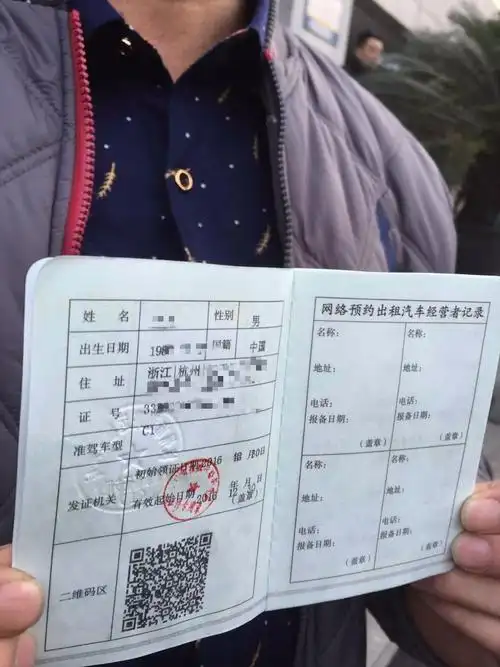 姓 名
性别
男
出生日期
198
国籍
中国
住 址
浙江 杭州
证 号
33
准驾车型
C1
发证机关
初始领证日期2016 年 月30日
有效起始日期2016 12 30
(盖章)
二维码区
网络预约出租汽车经营者记录
名称:
地址:
电话:
报备日期:
(盖章)
名称:
地址:
电话:
报备日期:
(盖章)
名称:
地址:
电话:
报备日期:
(盖章)
名称:
地址:
电话:
报备日期:
(盖章)